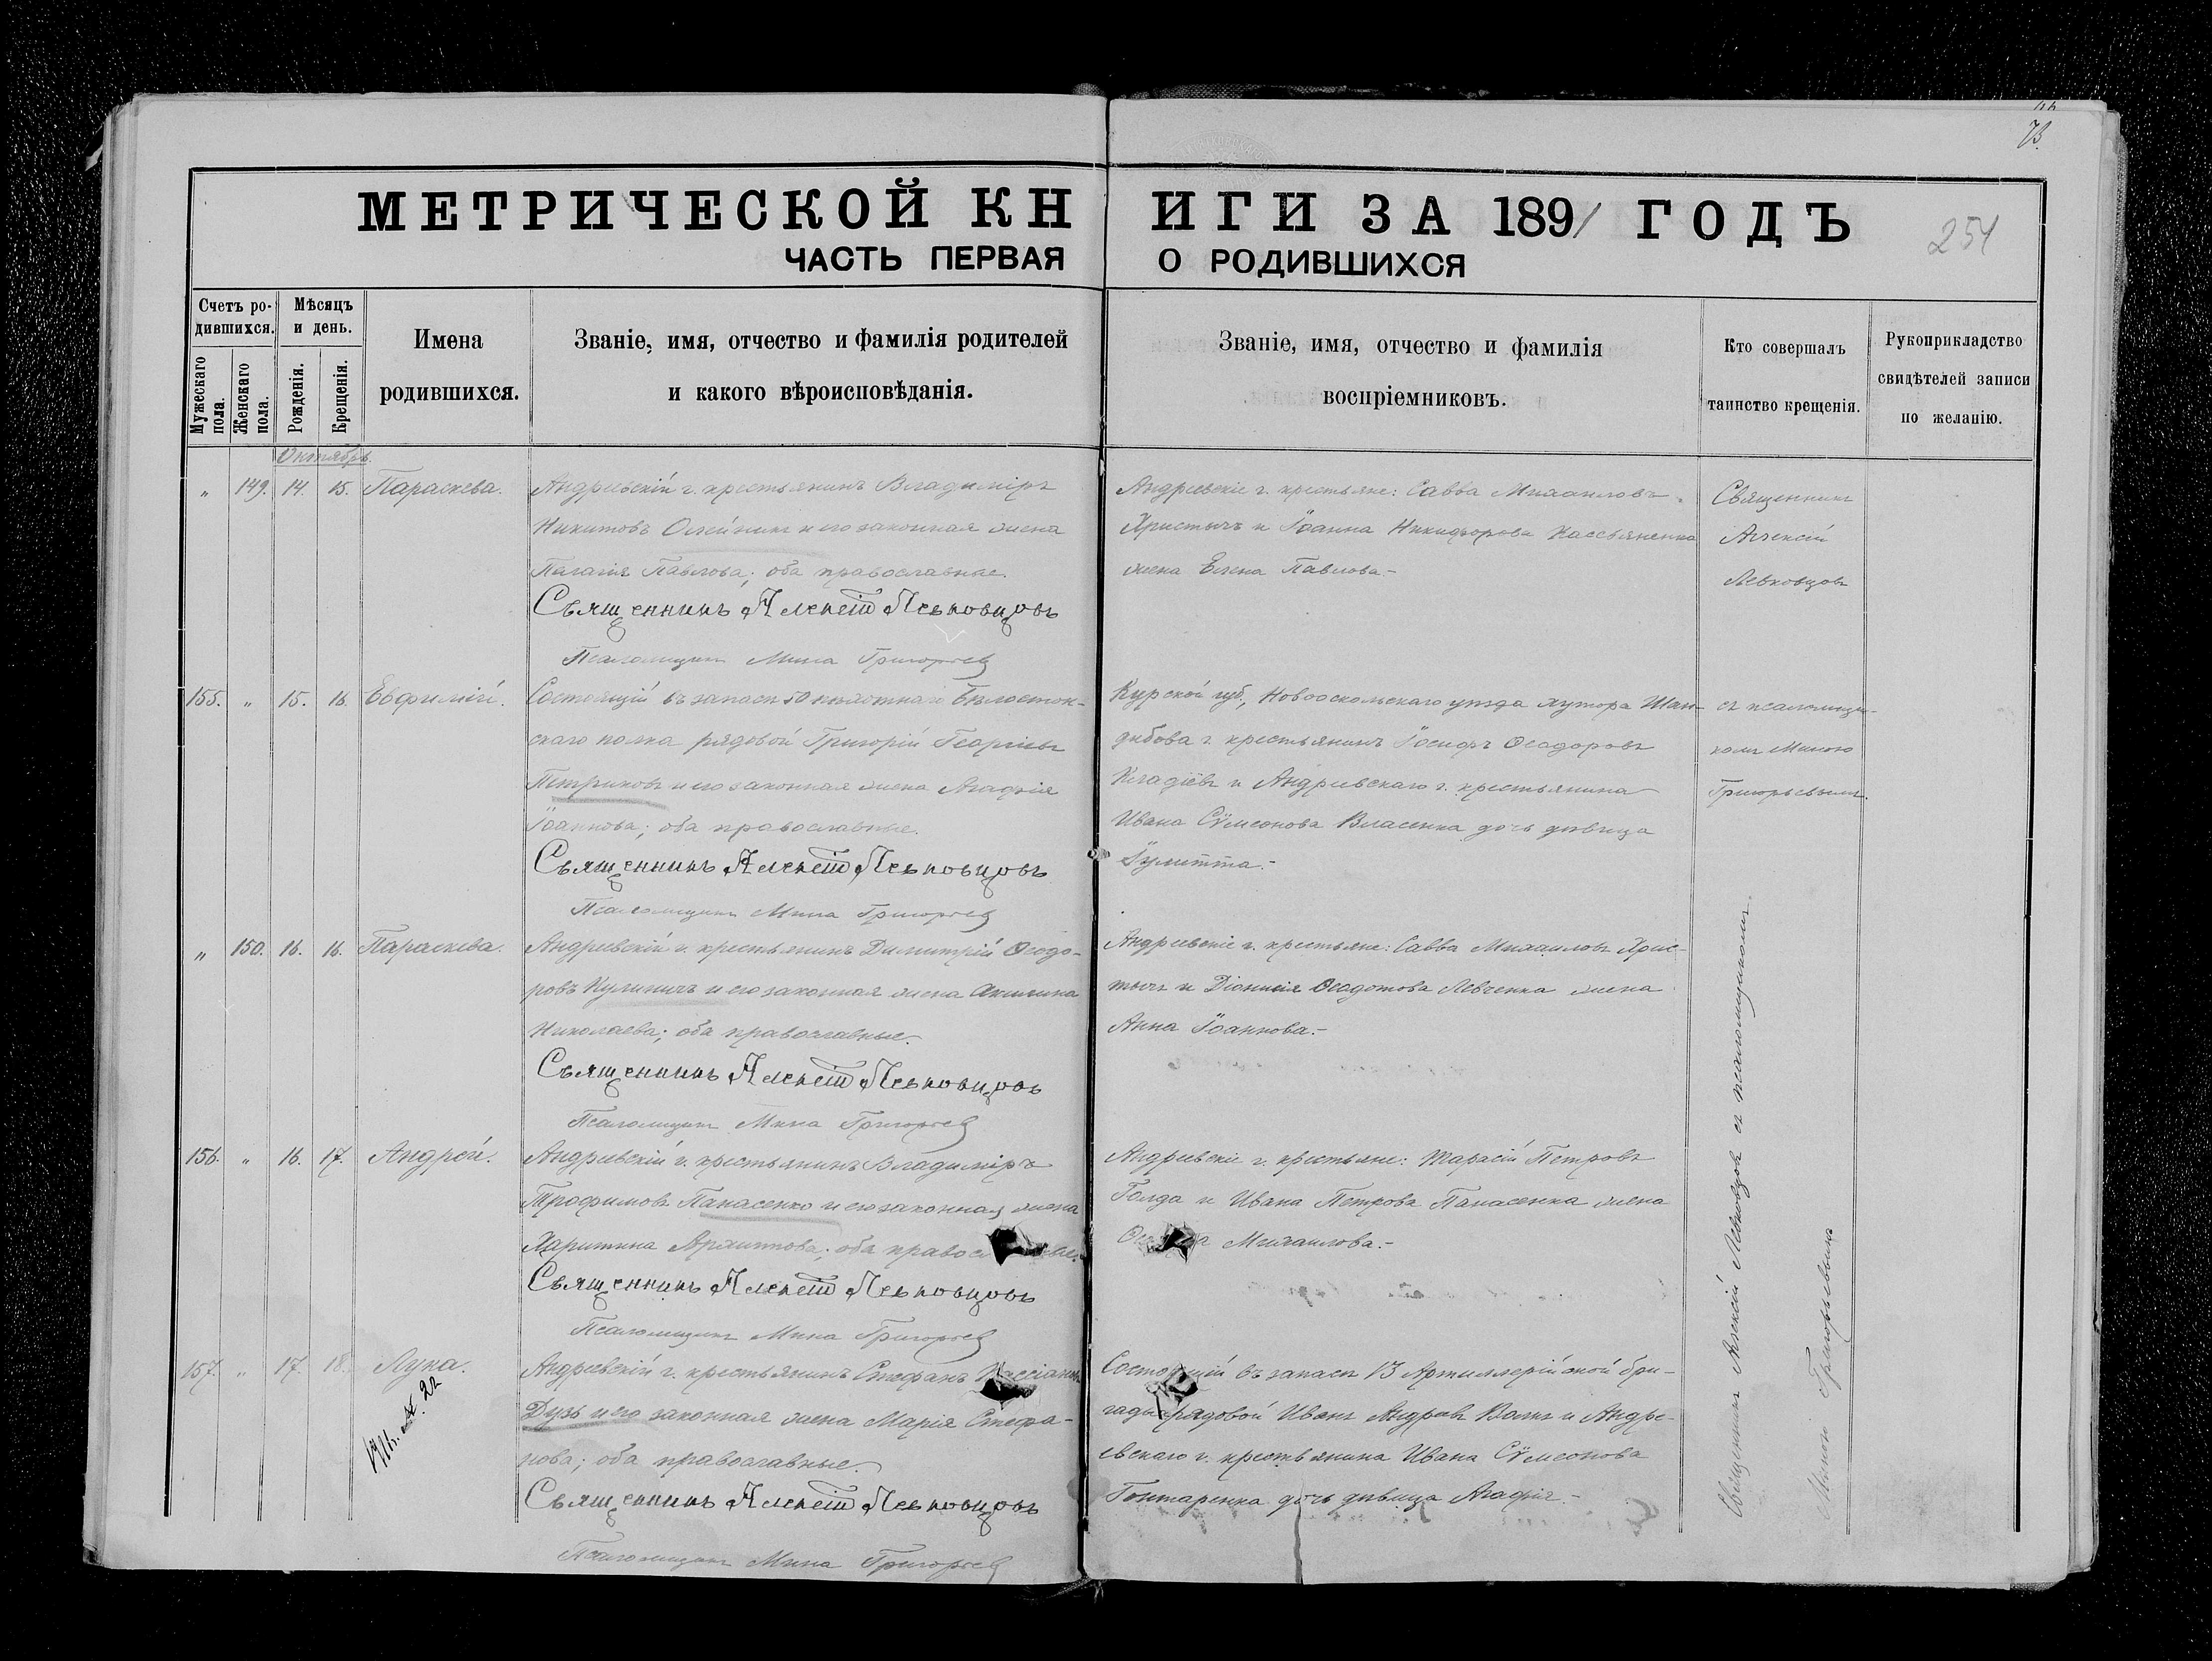 73.
МЕТРИЧЕСКОЙ КНИГИ ЗА 1891 ГОДЪ
254
ЧАСТЬ ПЕРВАЯ О РОДИВШИХСЯ
Счетъ родившихся.
Мужескаго пола.
Женскаго пола.
Мѣсяцъ и день.
Рожденія.
Крещенія.
Имена родившихся.
Званіе, имя, отчество и фамилія родителей
и какого вѣроисповѣданія.
Званіе, имя, отчество и фамилія
воспріемниковъ.
Кто совершалъ
таинство крещенія.
Рукоприкладство
свидѣтелей записи
по желанію.
Октябрь.
" 149. 14. 15. Параскева.
Андреевскій г. крестьянинъ Владиміръ
Никитовъ Олейникъ и его законная жена
Пелагія Павлова; оба православные.
Священникъ Алексій Левковцовъ
Псаломщикъ Мина Григорьев
Андреевскіе г. крестьяне: Савва Михаиловъ
Христычъ и Іоанна Никифорова Кассьяненка
жена Елена Павлова.-
Священникъ
Алексій
Левковцовъ
155. " 15. 16. Евфимій.
Состоящій въ запасѣ 50 пѣхотнаго Бѣлосток-
скаго полка рядовой Григорій Георгіевъ
Петриковъ и его законная жена Агафія
Іоаннова; оба православные.
Священникъ Алексій Левковцовъ
Псаломщикъ Мина Григорьев
Курской губ., Новооскольскаго уѣзда хутора Шан-
дыбова г. крестьянинъ Іосифъ Ѳеодоровъ
и Андреевскаго г. крестьянина
Ивана Сѵмеонова Власенка дочь дѣвица
Іулитта.-
съ псаломщи-
комъ Миною
Григорьевымъ.
" 150. 16. 16. Параскева.
Андреевскій г. крестьянинъ Димитрій Ѳеодо-
ровъ Куличичъ и его законная жена Акилина
Николаева; оба православные.
Священникъ Алексій Левковцовъ
Псаломщикъ Мина Григорьев
Андреевскіе г. крестьяне: Савва Михаиловъ Хрис-
тычъ и Діонисія Ѳеодотова Левченка жена
Анна Іоаннова.-
156. " 16. 17. Андрей.
Андреевскій г. крестьянинъ Владиміръ
Трофимовъ Панасенко и его законная жена
Харитина Архиппова; оба
Священникъ Алексій Левковцовъ
Псаломщикъ Мина Григорьев
Андреевскіе г. крестьяне: Тарасій Петровъ
Голда и Ивана Петрова Панасенка жена
Михаилова.-
157. " 17. 18. Лука.
Андреевскій г. крестьянинъ Стефанъ
Дузь и его законная жена Марія Стефа-
нова; оба православные.
Священникъ Алексій Левковцовъ
Псаломщикъ Мина Григорьев
Состоящій въ запасѣ 13 Артиллерійской бри-
гады рядовой Иванъ Андреевъ Волкъ и Андре-
евскаго г. крестьянина Ивана Сѵмеонова
Гонтаренка дочь дѣвица Агафія.-
Священникъ Алексій Левковцовъ съ псаломщикомъ
Миною Григорьевымъ